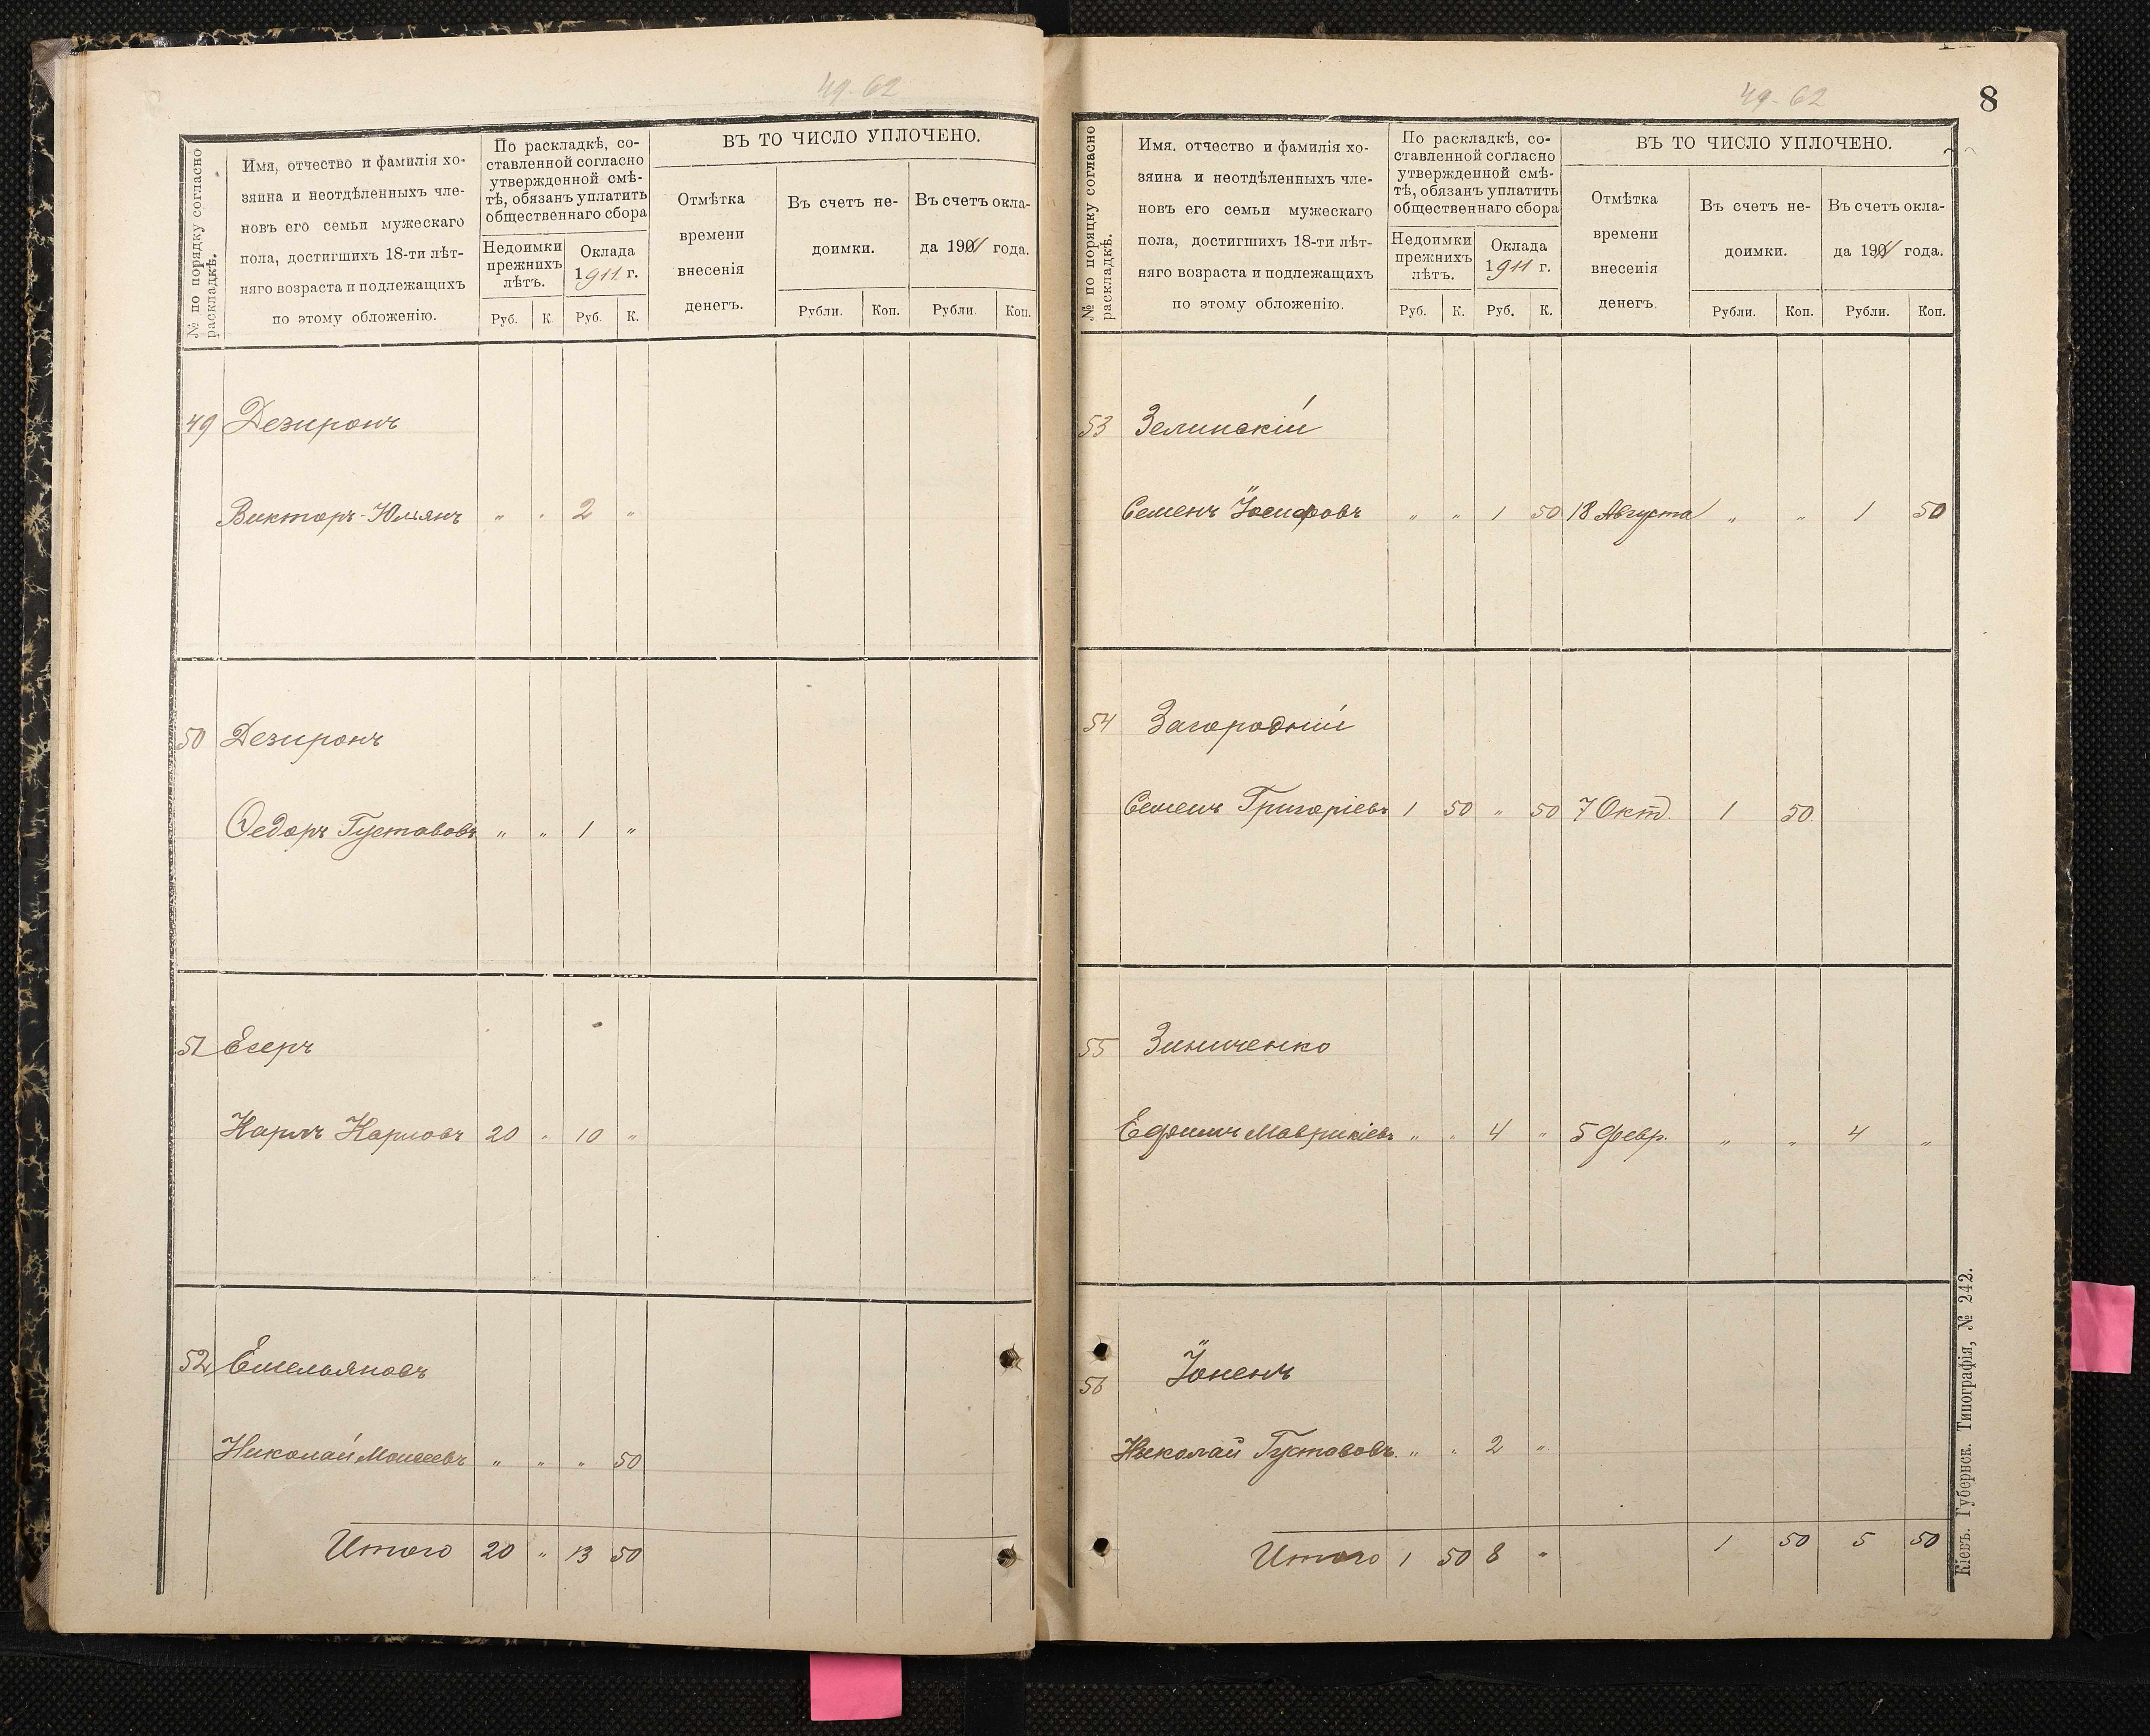 49-62
№ по порядку согласно раскладкѣ.
Имя, отчество и фамилія хо-
зяина и неотдѣленныхъ чле-
новъ его семьи мужескаго
пола, достигшихъ 18-ти лѣт-
няго возраста и подлежащихъ
по этому обложенію.
По раскладкѣ, со-
ставленной согласно
утвержденной смѣ-
тѣ, обязанъ уплатить
общественнаго сбора
Недоимки прежнихъ лѣтъ.
Оклада 1911 г.
Руб. К. Руб. К.
ВЪ ТО ЧИСЛО УПЛОЧЕНО.
Отмѣтка
времени
внесенія
денегъ.
Въ счетъ не-
доимки.
Въ счетъ окла-
да 1911 года.
Рубли. Коп. Рубли. Коп.
49 Дезиронъ
Викторъ-Юліянъ " " 2 "
50 Дезиронъ
Ѳедоръ Густавовъ " " 1 "
51 Езеръ
Карлъ Карловъ 20 " 10 "
52 Емельяновъ
Николай Моисеевъ " " " 50
Итого 20 " 13 50
49-62
8
№ по порядку согласно раскладкѣ.
Имя. отчество и фамилія хо-
зяина и неотдѣленныхъ чле-
новъ его семьи мужескаго
пола, достигшихъ 18-ти лѣт-
няго возраста и подлежащихъ
по этому обложенію.
По раскладкѣ, со-
ставленной согласно
утвержденной смѣ-
тѣ, обязанъ уплатить
общественнаго сбора
Недоимки прежнихъ лѣтъ.
Оклада 1911 г.
Руб. К. Руб. К.
ВЪ ТО ЧИСЛО УПЛОЧЕНО.
Отмѣтка
времени
внесенія
денегъ.
Въ счетъ не-
доимки.
Въ счетъ окла-
да 1911 года.
Рубли. Коп. Рубли. Коп.
53 Зелинскій
Семенъ Іосифовъ " " 1 50 18 Августа " " 1 50
54 Загородній
Семенъ Григоріевъ 1 50 " 50 7 Окт. 1 50
55 Зинченко
Ефимъ Маврикіевъ " " 4 " 5 Февр. " " 4 "
56 Іоненъ
Николай Густавовъ " " 2 "
Итого 1 50 8 " 1 50 5 50
Кіевъ. Губернск. Типографія, № 242.